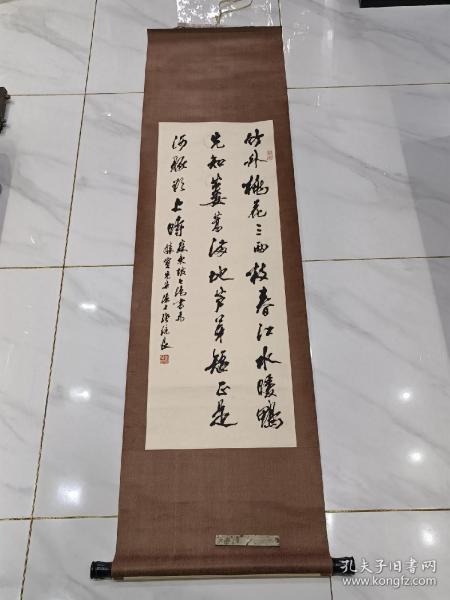 竹外桃花三两枝春江水暖鸭
先知蒌蒿满地芦芽短正是
河豚欲上时
孔夫子旧书网
www.kongfz.com